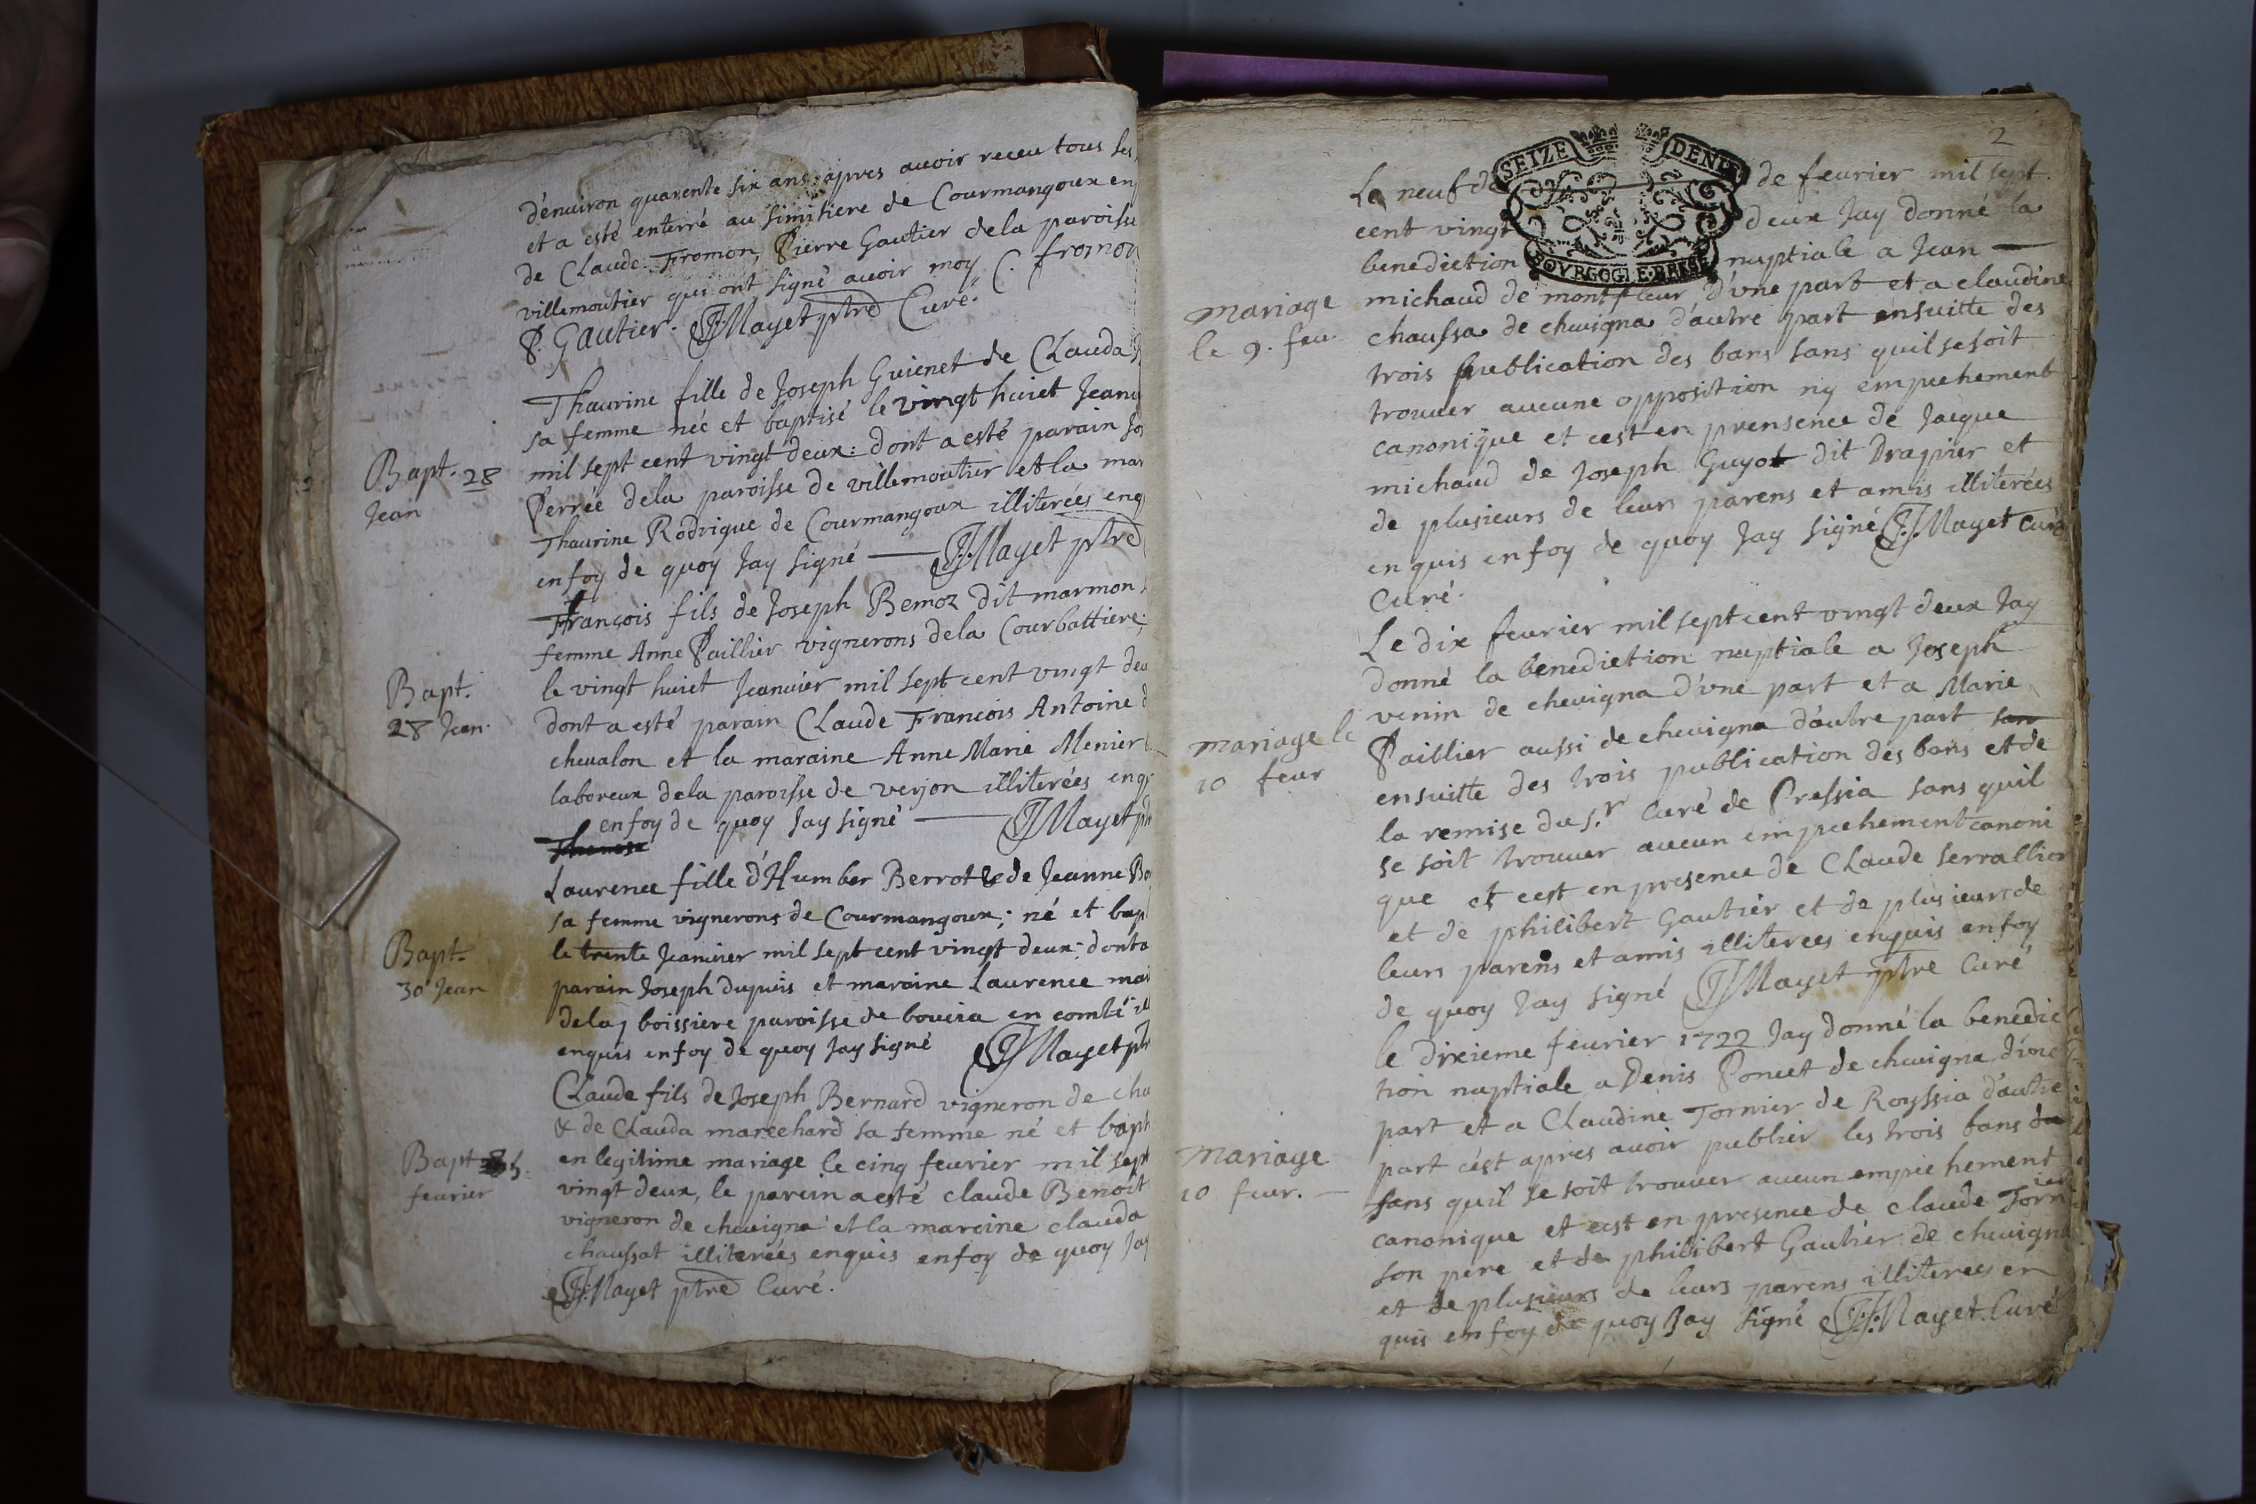 d'enuiron quarente six ans apres auoir receu tous ses
et a esté enterré au simitiere de Courmangoux en
de Claude Fromon, Pierre Gautier de la paroisse
villemoutier qui ont signé auoir moy C. fromon
P. Gautier. JMayet ptre Curé.
Thaurine fille de Joseph Guienet de Clauda
sa femme née et baptisé le vingt huict Jean
Bapt. 28
Jean
mil sept cent vingt deux: dont a esté parain Jos
Perrée dela paroisse de villemoutier et la mar
Thaurine Rodrigue de Courmangoux illiterées enq
en foy de quoy Jay signé JMayet ptre
François fils de Joseph Bemoz dit marmon
femme Anne Paillier vignerons dela Courbattiere;
Bapt.
28 Jean.
le vingt huict Jeanuier mil sept cent vingt deu
dont a esté parain Claude François Antoine d
cheualon et la maraine Anne Marie Menier
laboreux dela paroisse de verjon illiterées enq
en foy de quoy Jay signé JMayet pt
Laurence fille d'Humber Berrot & de Jeanne Bo
sa femme vignerons de Courmangoux; né et bap
Bapt.
30 Jean
le trente Jeanuier mil sept cent vingt deux: dont a
parain Joseph dupuis et maraine Laurence mai
delaj boissiere paroisse de boucia en comté ill
enquis en foy de quoy Jay signé JMayet ptr
Claude fils de Joseph Bernard vigneron de cha
& de Clauda marechard sa femme né et bapt
Bapt 5.
feurier
en legitime mariage le cinq feurier mil sept
vingt deux, le parein a esté claude Benoit
vigneron de cheuigna et la mareine clauda
chaussat illiterées enquis en foy de quoy Jay
JMayet ptre Curé.
2
SEIZE DENIE
BOVRGOGE. BRESE
Le neuf de de feurier mil sept.
cent vingt deux Jay donné la
benediction nuptiale a Jean
mariage
le 9. feu.
michaud de montfleur d'vne part et a claudine
chaussa de cheuigna d'autre part ensuitte des
trois publication des bans sans quil se soit
trouuer aucune opposition ny empechement
canonique et cest en prensence de Jacque
michaud de Joseph Guyot dit Drapier et
de plusieurs de leurs parens et amis illiterées
enquis en foy de quoy Jay signé JMayet curé
Curé.
Le dix feurier mil sept cent vingt deux Jay
donné la benediction nuptiale a Joseph
venin de cheuigna d'vne part et a Marie
mariage le
10 feur
Paillier aussi de cheuigna d'autre part san
ensuitte des trois publication des bans et de
la remise du s.r Curé de Pressia sans quil
se soit trouuer aucun empechement canoni
que et cest en presence de Claude serrallior
et de philibert Gautier et de plusieurs de
leurs parens et amis illiterees enquis en foy
de quoy Jay signé JMayet ptre Curé
le dixieme feurier 1722 Jay donné la benedic
tion nuptiale a Denis Poncet de cheuigna d'vne
part et a Claudine Tornier de Royssia d'autre
mariage
10 feur.
part c'est apres avoir publier les trois bans du
sans qu'il se soit trouuer aucun empechement
canonique et cest en presence de claude Tornier
son pere et de philibert Gautier de cheuigna
et de plusieurs de leurs parens illiterees en
quis en foy de quoy Jay signé JMayet Curé